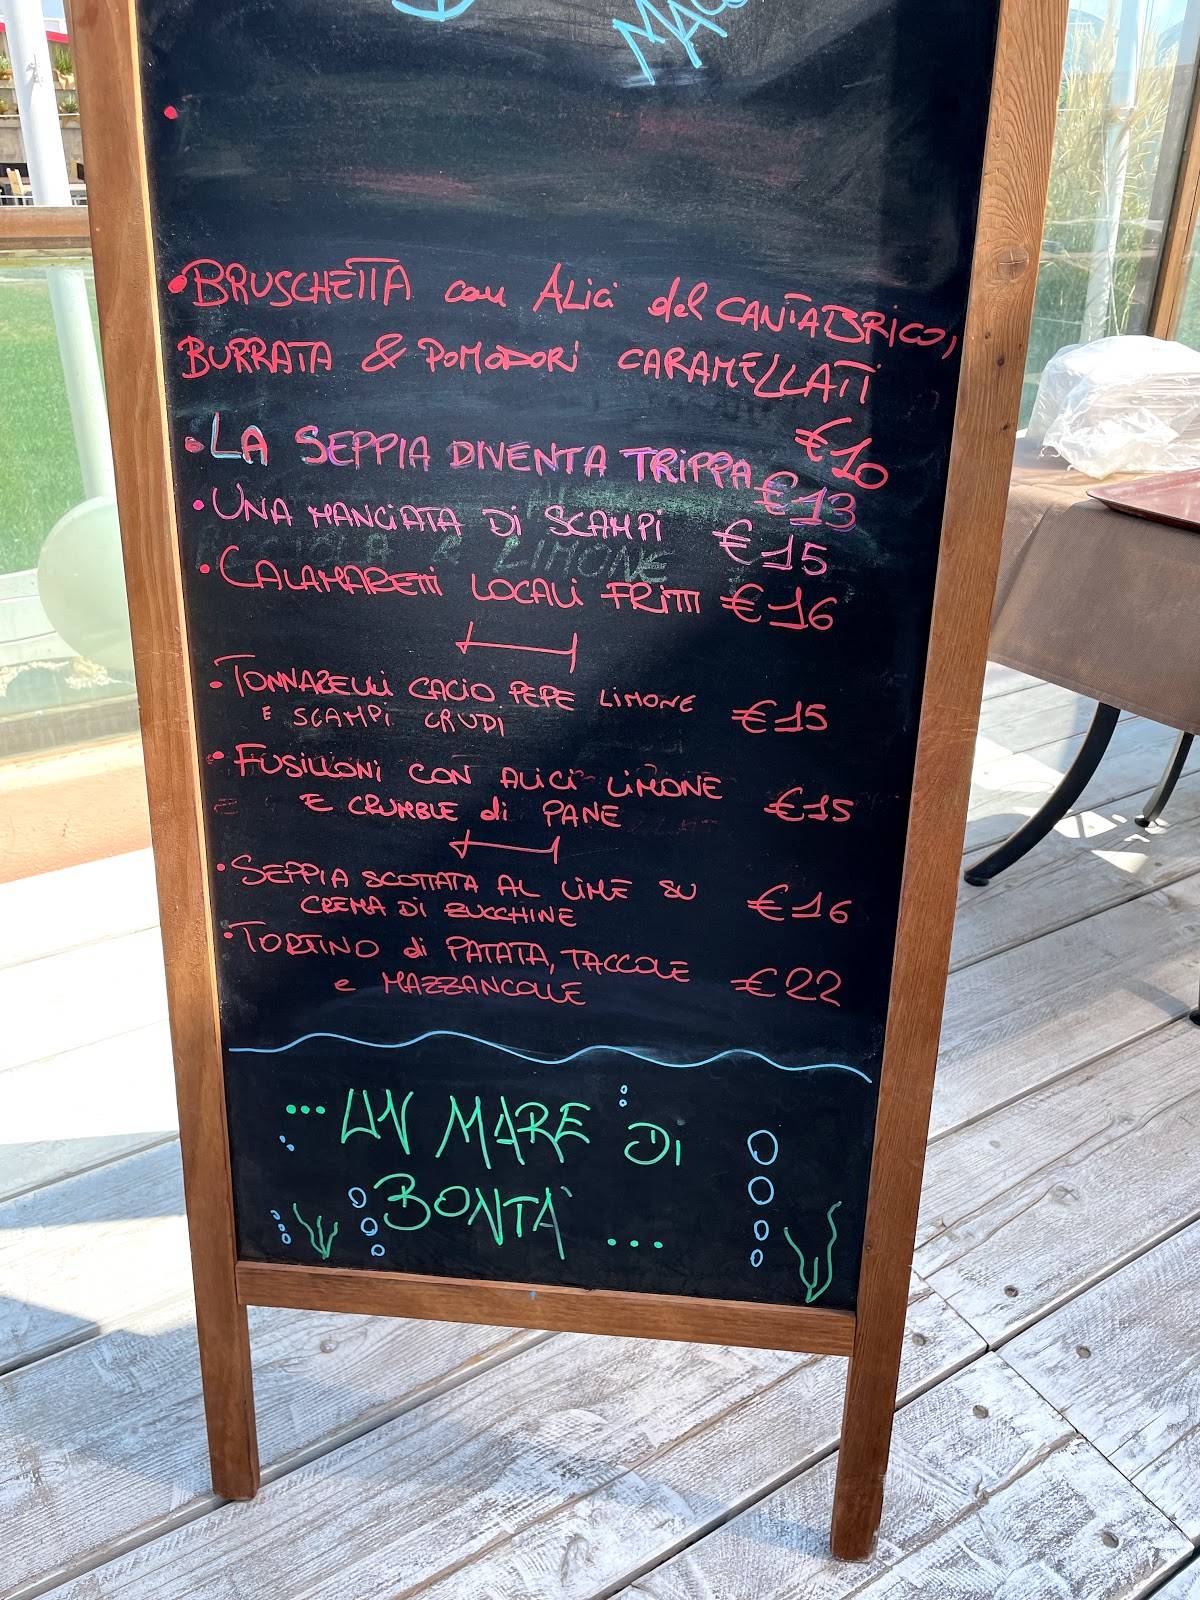 BRUSCHETTA con ALICI del CANTABRICO,
BURRATA & POMODORI CARAMELLATI
€10
LA SEPPIA DIVENTA TRIPPA €13
UNA MANCIATA DI SCAMPI €15
& LIMONE
CALAMARETTI LOCALI FRITTI €16
TONNARELLI CACIO PEPE LIMONE
E SCAMPI CRUDI €15
FUSILLONI CON ALICI LIMONE
E CRUMBLE di PANE €15
SEPPIA SCOTTATA AL LIME SU
CREMA DI ZUCCHINE €16
TORTINO di PATATA, TACCOLE
e MAZZANCOLLE €22
... UN MARE DI
BONTA' ...